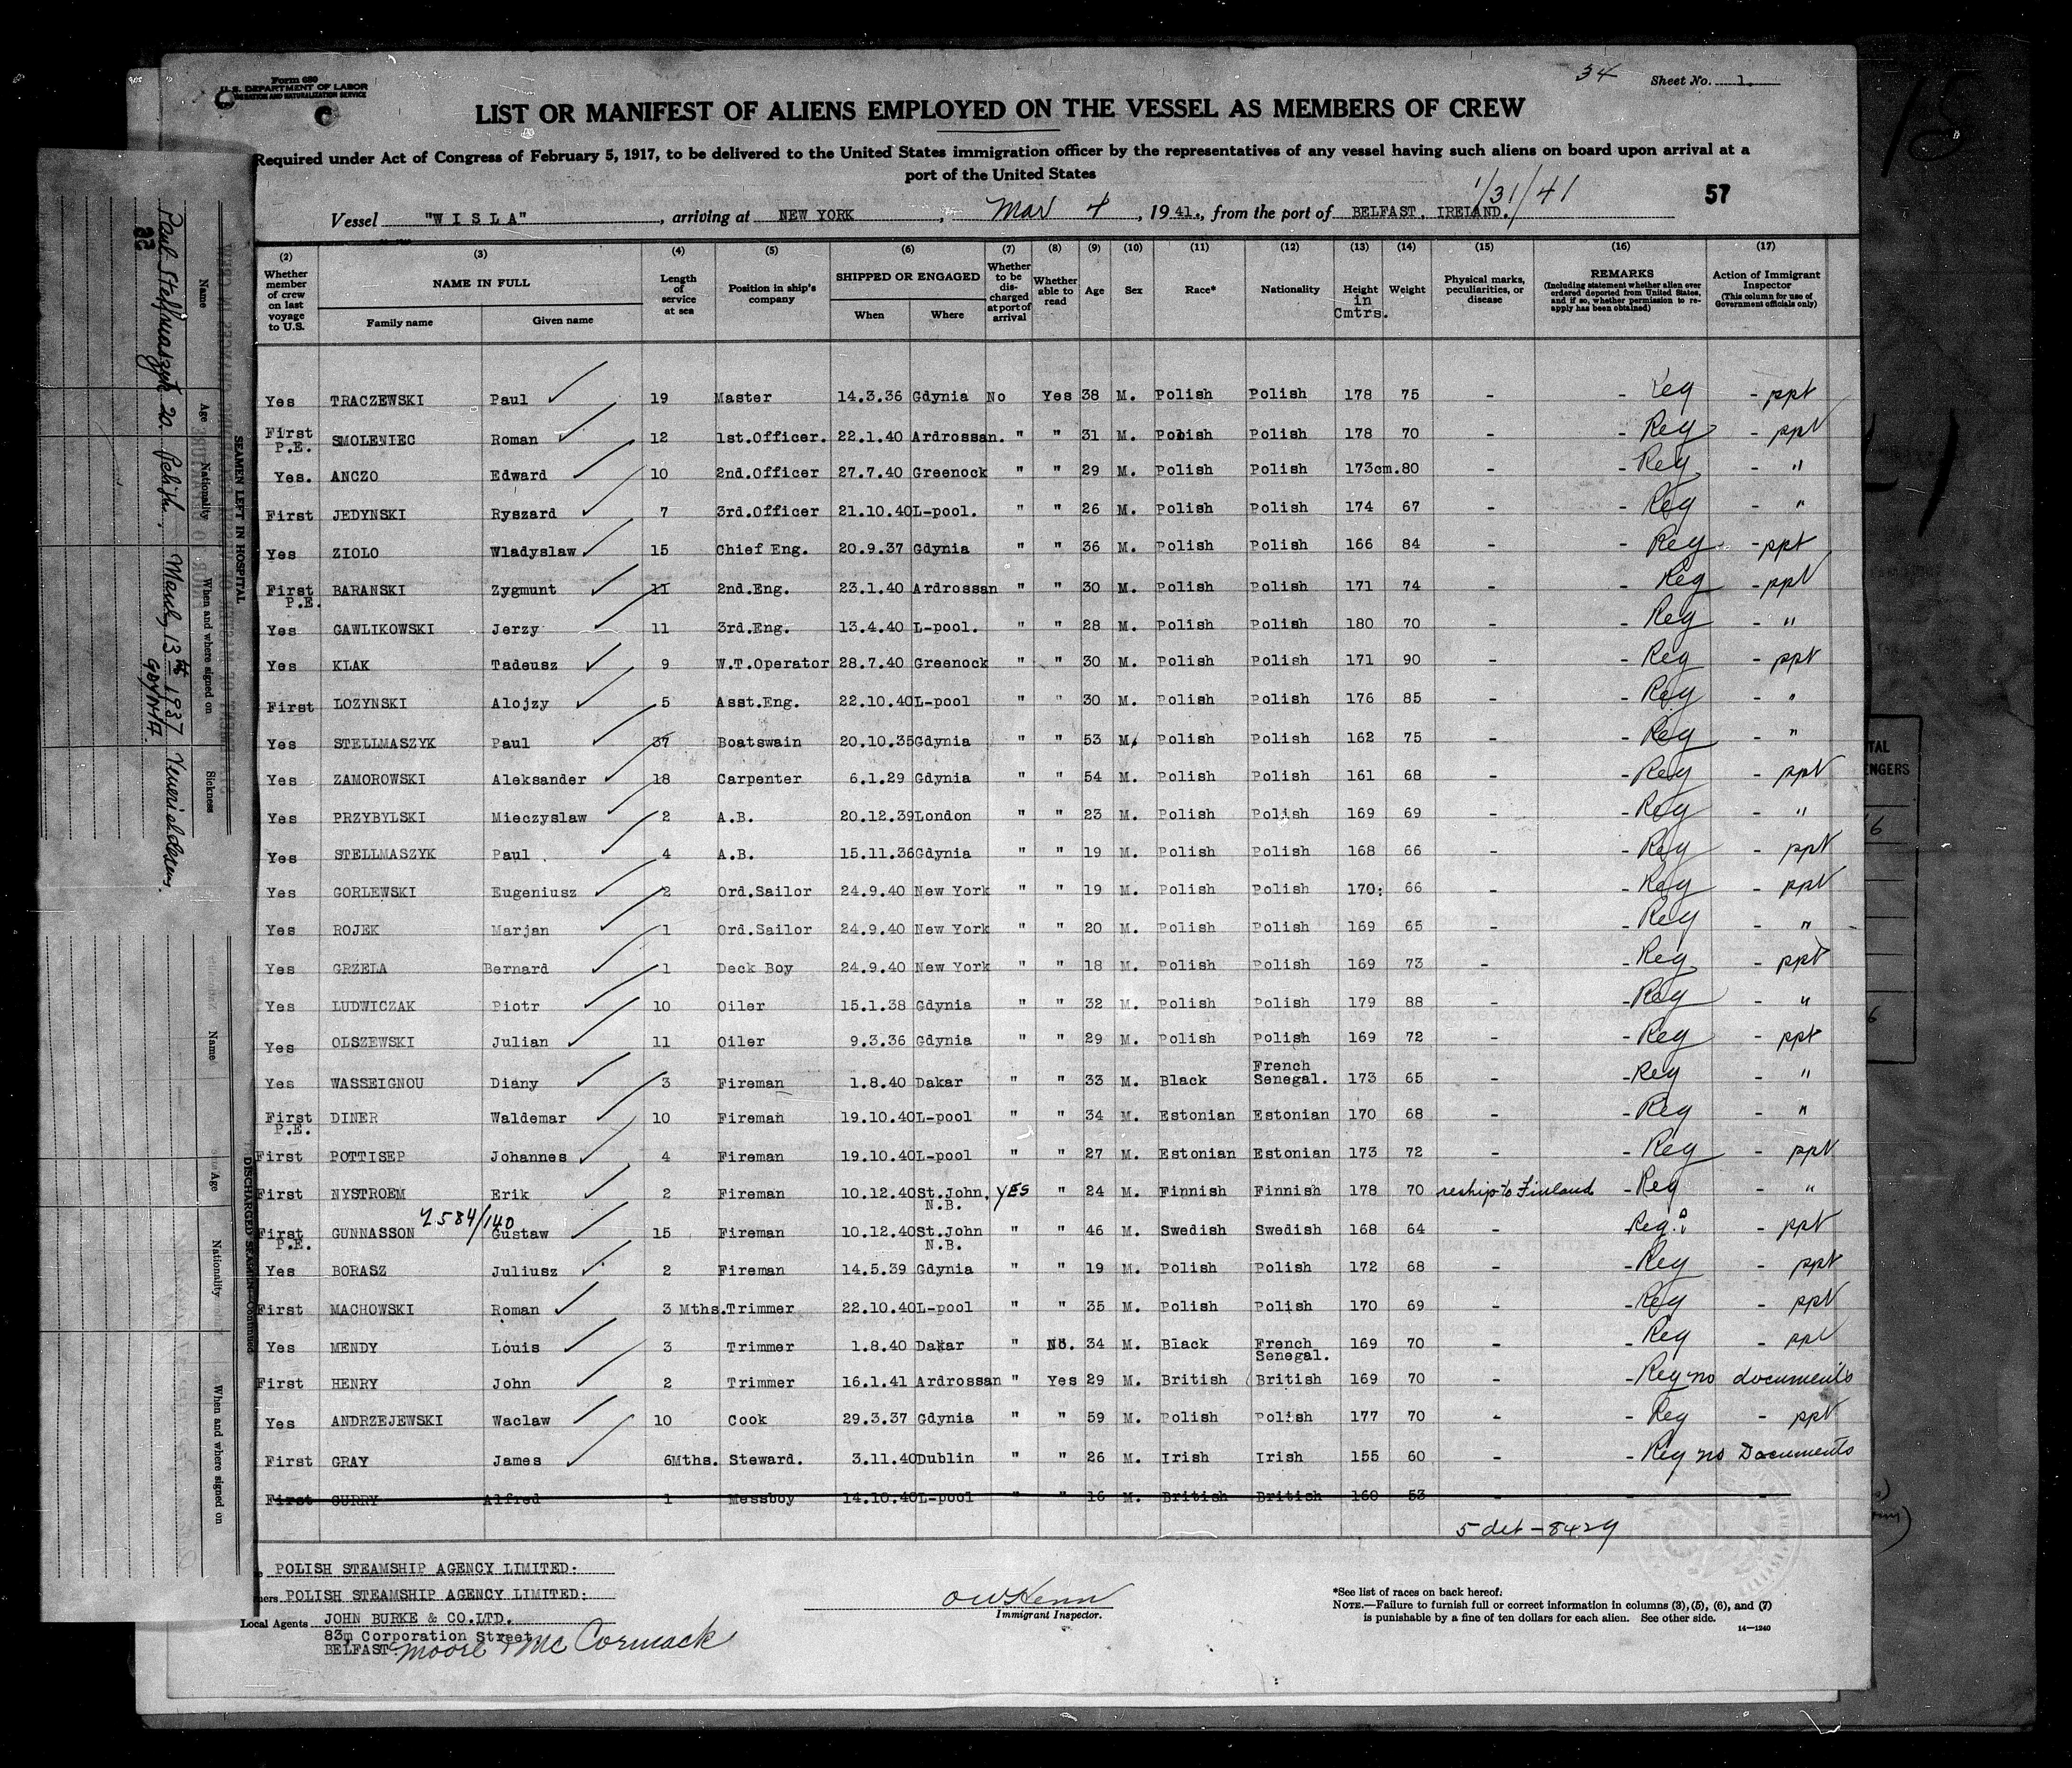 Form 680
U.S. DEPARTMENT OF LABOR
IMMIGRATION AND NATURALIZATION SERVICE
34 Sheet No. 1.
LIST OR MANIFEST OF ALIENS EMPLOYED ON THE VESSEL AS MEMBERS OF CREW
Required under Act of Congress of February 5, 1917, to be delivered to the United States immigration officer by the representatives of any vessel having such aliens on board upon arrival at a
port of the United States
1/31/41 57
Vessel "WISLA", arriving at NEW YORK, Mar 4, 1941., from the port of BELFAST, IRELAND.
(2) (3) (4) (5) (6) (7) (8) (9) (10) (11) (12) (13) (14) (15) (16) (17)
Whether member of crew on last voyage to U.S. NAME IN FULL Family name Given name Length of service at sea Position in ship's company SHIPPED OR ENGAGED When Where Whether to be discharged at port of arrival Whether able to read Age Sex Race* Nationality Height in Cmtrs. Weight Physical marks, peculiarities, or disease REMARKS (Including statement whether alien ever ordered deported from United States, and if so, whether permission to reapply has been obtained) Action of Immigrant Inspector (This column for use of Government officials only)
Yes TRACZEWSKI Paul 19 Master 14.3.36 Gdynia No Yes 38 M. Polish Polish 178 75 - - Reg - ppt
First P.E. SMOLENIEC Roman 12 1st.Officer. 22.1.40 Ardrossan. " " 31 M. Polish Polish 178 70 - - Reg - ppt
Yes. ANCZO Edward 10 2nd.Officer 27.7.40 Greenock " " 29 M. Polish Polish 173cm. 80 - - Reg - "
First JEDYNSKI Ryszard 7 3rd.Officer 21.10.40 L-pool. " " 26 M. Polish Polish 174 67 - - Reg - "
Yes ZIOLO Wladyslaw 15 Chief Eng. 20.9.37 Gdynia " " 36 M. Polish Polish 166 84 - - Reg - ppt
First P.E. BARANSKI Zygmunt 11 2nd.Eng. 23.1.40 Ardrossan " " 30 M. Polish Polish 171 74 - - Reg - ppt
Yes GAWLIKOWSKI Jerzy 11 3rd.Eng. 13.4.40 L-pool. " " 28 M. Polish Polish 180 70 - - Reg - "
Yes KLAK Tadeusz 9 W.T.Operator 28.7.40 Greenock " " 30 M. Polish Polish 171 90 - - Reg - ppt
First LOZYNSKI Alojzy 5 Asst.Eng. 22.10.40 L-pool " " 30 M. Polish Polish 176 85 - - Reg - "
Yes STELLMASZYK Paul 37 Boatswain 20.10.35 Gdynia " " 53 M. Polish Polish 162 75 - - Reg - "
Yes ZAMOROWSKI Aleksander 18 Carpenter 6.1.29 Gdynia " " 54 M. Polish Polish 161 68 - - Reg - ppt
Yes PRZYBYLSKI Mieczyslaw 2 A.B. 20.12.39 London " " 23 M. Polish Polish 169 69 - - Reg - "
Yes STELLMASZYK Paul 4 A.B. 15.11.36 Gdynia " " 19 M. Polish Polish 168 66 - - Reg - ppt
Yes GORLEWSKI Eugeniusz 2 Ord.Sailor 24.9.40 New York " " 19 M. Polish Polish 170: 66 - - Reg - ppt
Yes ROJEK Marjan 1 Ord.Sailor 24.9.40 New York " " 20 M. Polish Polish 169 65 - - Reg - "
Yes GRZELA Bernard 1 Deck Boy 24.9.40 New York " " 18 M. Polish Polish 169 73 - - Reg - ppt
Yes LUDWICZAK Piotr 10 Oiler 15.1.38 Gdynia " " 32 M. Polish Polish 179 88 - - Reg - "
Yes OLSZEWSKI Julian 11 Oiler 9.3.36 Gdynia " " 29 M. Polish Polish 169 72 - - Reg - ppt
Yes WASSEIGNOU Diany 3 Fireman 1.8.40 Dakar " " 33 M. Black French Senegal. 173 65 - - Reg - "
First P.E. DINER Waldemar 10 Fireman 19.10.40 L-pool " " 34 M. Estonian Estonian 170 68 - - Reg - "
First POTTISEP Johannes 4 Fireman 19.10.40 L-pool " " 27 M. Estonian Estonian 173 72 - - Reg - ppt
First NYSTROEM Erik 2 Fireman 10.12.40 St.John, N.B. YES " 24 M. Finnish Finnish 178 70 reship to Finland - Reg - "
First P.E. GUNNASSON 2584/140 Gustaw 15 Fireman 10.12.40 St.John N.B. " " 46 M. Swedish Swedish 168 64 - Reg. - ppt
Yes BORASZ Juliusz 2 Fireman 14.5.39 Gdynia " " 19 M. Polish Polish 172 68 - - Reg - ppt
First MACHOWSKI Roman 3 Mths. Trimmer 22.10.40 L-pool " " 35 M. Polish Polish 170 69 - - Reg - ppt
Yes MENDY Louis 3 Trimmer 1.8.40 Dakar " No. 34 M. Black French Senegal. 169 70 - - Reg - ppt
First HENRY John 2 Trimmer 16.1.41 Ardrossan " Yes 29 M. British British 169 70 - - Reg no documents
Yes ANDRZEJEWSKI Waclaw 10 Cook 29.3.37 Gdynia " " 59 M. Polish Polish 177 70 - - Reg - ppt
First GRAY James 6Mths. Steward. 3.11.40 Dublin " " 26 M. Irish Irish 155 60 - - Reg no Documents
First CURRY Alfred 1 Messboy 14.10.40 L-pool " " 16 M. British British 160 53 - - -
5 det - 8429
POLISH STEAMSHIP AGENCY LIMITED:
POLISH STEAMSHIP AGENCY LIMITED:
Local Agents JOHN BURKE & CO.LTD.
83m Corporation Street
BELFAST. Moore & Mc Cormack
Immigrant Inspector.
*See list of races on back hereof.
NOTE.—Failure to furnish full or correct information in columns (3), (5), (6), and (7)
is punishable by a fine of ten dollars for each alien. See other side.
14—1240
SEAMEN LEFT IN HOSPITAL
Name Age Nationality When and where signed on Sickness
Paul Stellmaszyk 20 Polish, March, 13th 1937 GDYNIA. Venerial
DISCHARGED SEAMEN—Continued
Name Age Nationality When and where signed on
15